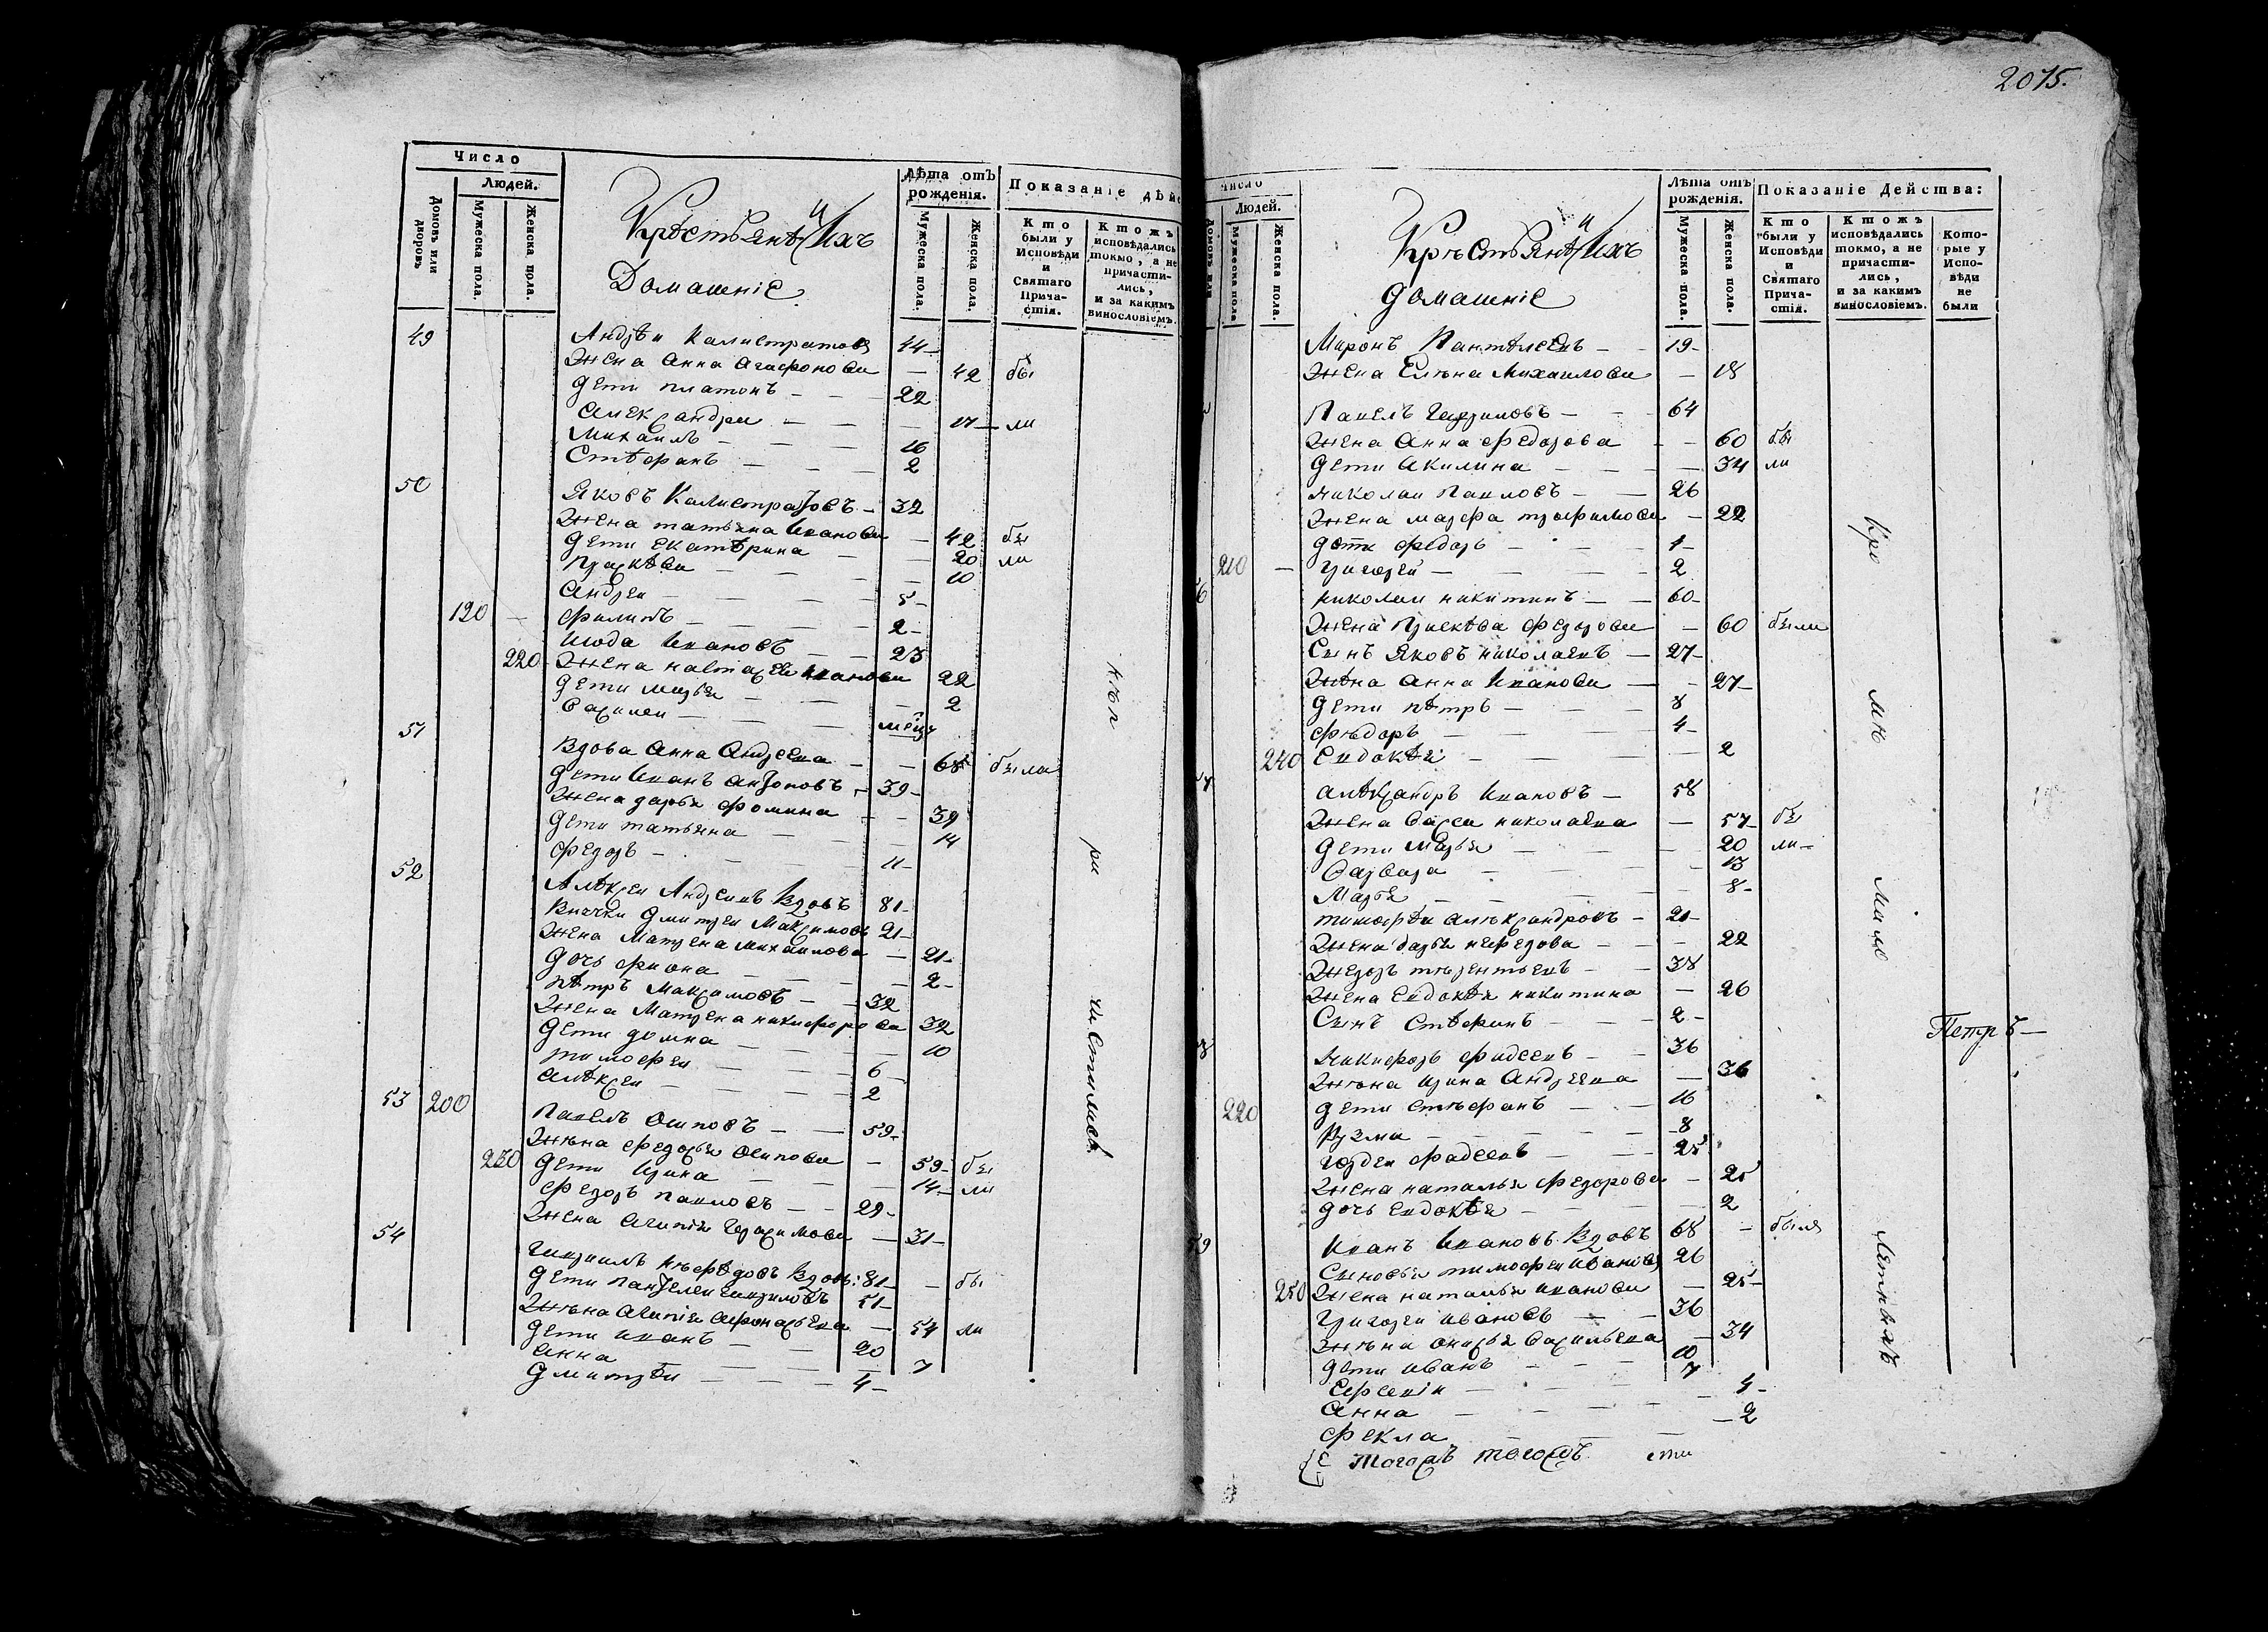 2075.
Число
Людей.
Домовъ или дворовъ
Мужеска пола.
Женска пола.
Крѣстьянѣ и Ихъ
Домашніе
Лѣта отъ рожденія.
Мужеска пола.
Женска пола.
Показаніе дѣйс
Кто были у Исповѣди и Святаго Причастія.
Ктожъ исповѣдались токмо, а не причастились, и за какимъ винословіемъ.
49 Андрѣи Калистратовъ 44
Жена Анна Агафонова 42 бы
Дети платонъ 22
Александра 17 ли
Михаилъ 16
Стѣфанъ 2
50 Яковъ Калистратовъ 32
Жена татьяна Иванова 42 бы
Дети екатѣрина 20 ли
Праскѣва 10
Андреи 5
120 филипъ 2
Иванова 23
220 Жена настасея Иванова 22
Дети марья 2
Василеи
51 Вдова Анна Андреева 68 была
Дети Иванъ Антоновъ 39
Жена дарья фомина 39
Дети татьяна 14
Федоръ 11
52 Алѣксеи Андреевъ Вдовъ 81
Внучки Дмитреи Максимовъ 21
Жена Матрена михаилова 21
Дочь фиона 2
Пѣтръ Максимовъ 32
Жена Матрена никифорова 32
Дети домна 10
тимофеи 6
алѣксеи 2
53 200 Павелъ Осиповъ 59
Жѣна федосья Осипова 59 бы
230 Дети Ирина 14 ли
Федоръ павловъ 29
Жена Агапія Герасимова 31
54 Гаврилъ нѣфѣдовъ Вдовъ: 81 бы
Дети пантелеи гавриловъ 51
Жѣна Агапія 54 ли
Дети иванъ 20
анна 7
Дмитрѣи 4
нѣ п ри ча стились.
Число
Людей.
Мужеска пола
Женска пола.
Крѣстьянѣ и Ихъ
домашніе
Лѣта отъ рожденія.
Мужеска пола.
Женска пола.
Показаніе Действа:
Кто были у Исповѣди и Святаго Причастія.
Ктожъ исповѣдались токмо, а не причастились, и за какимъ винословіемъ.
Которые у Исповѣди не были
Миронъ Пантѣлеевъ 19
Жена Елѣна Михаилова 18
Павелъ Гавриловъ 64
Жена Анна федорова 60 бы
Дети Акилина 34 ли
николаи Павловъ 26
Жена марфа трофимова 22
дѣти федоръ 4
210 Григореи 2
николаи никитинъ 60
Жена Праскѣва федорова 60 были
Сынъ Яковъ николаевъ 27
Жѣна анна Иванова 27
Дети пѣтръ 8
фѣдоръ 4
240 Евдокѣя 2
алѣксандръ Ивановъ 58
Жена николаева 57 бы
Дети Марья 20 ли
Варвара 13
Марья 8
тимофѣи алѣксандровъ 21
Жена дарья нефедова 22
Федоръ тѣрентьевъ 38
Жена Евдокѣя никитина 26
Сынъ Стѣфанъ 2
Петръ
никифоръ фадеевъ 36
Жѣна ирина Андреева 36
220 Дети стѣфанъ 16
Кузма 8
Гордеи фадеевъ 25
Жена наталья федорова 25
Дочь Евдокѣя 2
59 Иванъ Ивановъ Вдовъ 68 былъ
Сыновья тимофеи Ивановъ 26
250 Жена наталья иванова 25
Григореи ивановъ 36
Жѣна васильева 34
Дети иванъ 10
Евсевіи 7
Анна 4
фекла 2
кро мѣ мало летныхъ